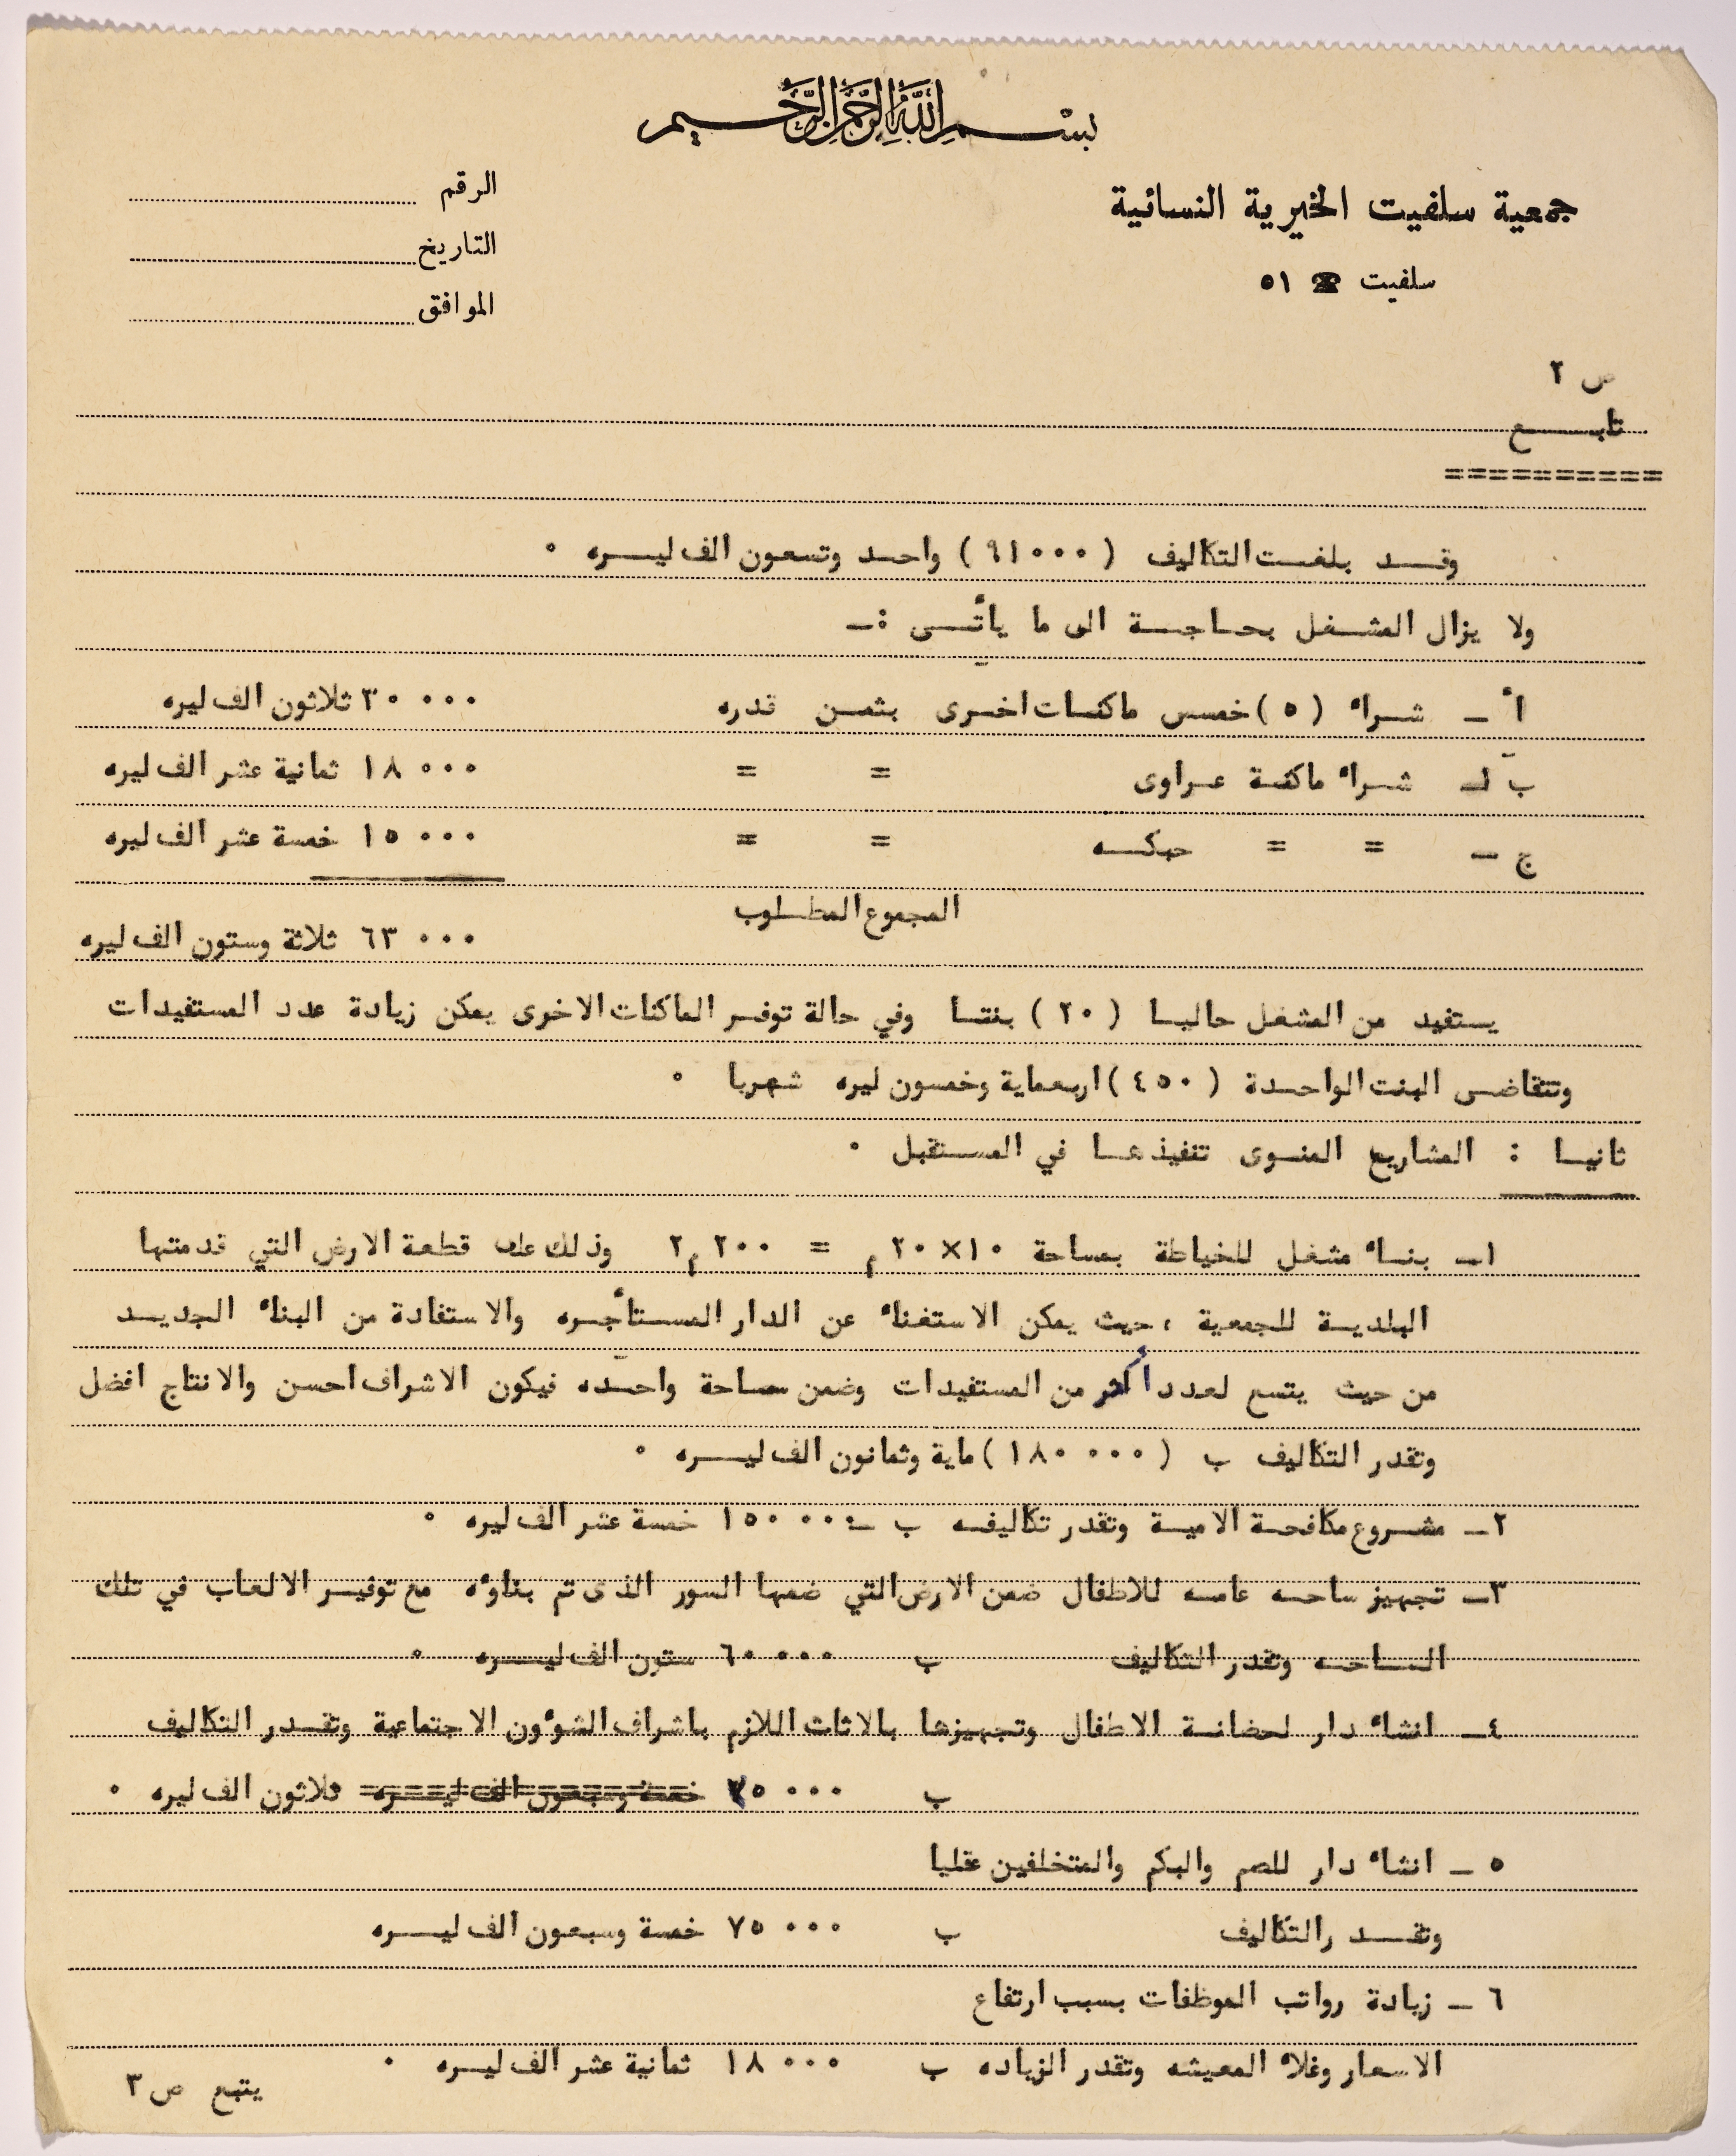 بسم الله الرحمن الرحيم
جمعية سلفيت الخيرية النسائية
سلفيت ☎ ٥١
الرقم
التاريخ
الموافق
ص ٢
تابـــع
==========
وقـــد بلغــت التكاليف ( ٩١٠٠٠ ) واحــد وتسعون الف ليـــره ٠
ولا يزال المشــغل بحــاجــة الى ما يأتــى :ــ
أ ــ شــراء ( ٥ ) خمســ ماكنــات اخــرى بثمــن قدره ٣٠٠٠٠ ثلاثون الف ليره
ب ــ شــراء ماكنــة عــراوى = = ١٨٠٠٠ ثمانية عشر الف ليره
ج ــ = = حبكــه = = ١٥٠٠٠ خمسة عشر الف ليره
المجموع المطــلوب
٦٣٠٠٠ ثلاثة وستون الف ليره
يستفيد من المشغل حاليــا ( ٢٠ ) بنتــا وفي حالة توفــر الماكنات الاخرى يمكن زيادة عدد المستفيدات
وتتقاضــى البنت الواحــدة ( ٤٥٠ ) اربعماية وخمسون ليره شهريا ٠
ثانيــا : المشاريع المنــوى تنفيذهــا في المســتقبل ٠
١ــ بنــاء مشغل للخياطة بمساحة ١٠×٢٠م = ٢٠٠ م٢ وذلك على قطعة الارض التي قدمتها
البلديــة للجمعية ، حيث يمكن الاستغناء عن الدار المســتأجــره والاستفادة من البناء الجديــد
من حيث يتسع لعدد أكثر من المستفيدات وضمن مساحة واحــده فيكون الاشراف احسن والانتاج افضل
وتقدر التكاليف ب ( ١٨٠٠٠٠ ) ماية وثمانون الف ليـــره ٠
٢ــ مشــروع مكافحــة الاميــة وتقدر تكاليفــه ب ١٥٠٠٠٠ خمسة عشر الف ليره ٠
٣ــ تجهيز ساحــه عامــه للاطفال ضمن الارض التي ضمها السور الذى تم بناؤه مع توفيــر الالعاب في تلك
الســاحــه وتقدر التكاليف ب ٦٠٠٠٠ ستون الف ليـــره ٠
٤ــ انشاء دار لحضانــة الاطفال وتجهيزها بالاثاث اللازم باشراف الشوءون الاجتماعية وتقــدر التكاليف
ب ٣٥٠٠٠ خمسة وسبعون الف ليــره ثلاثون الف ليره ٠
٥ ــ انشاء دار للصم والبكم والمتخلفين عقليا
وتقــد ر التكاليف ب ٧٥٠٠٠ خمسة وسبعون الف ليـــره
٦ ــ زيادة رواتب الموظفات بسبب ارتفاع
الاسعار وغلاء المعيشه وتقدر الزياده ب ١٨٠٠٠ ثمانية عشر الف ليـــره ٠
يتبع ص ٣